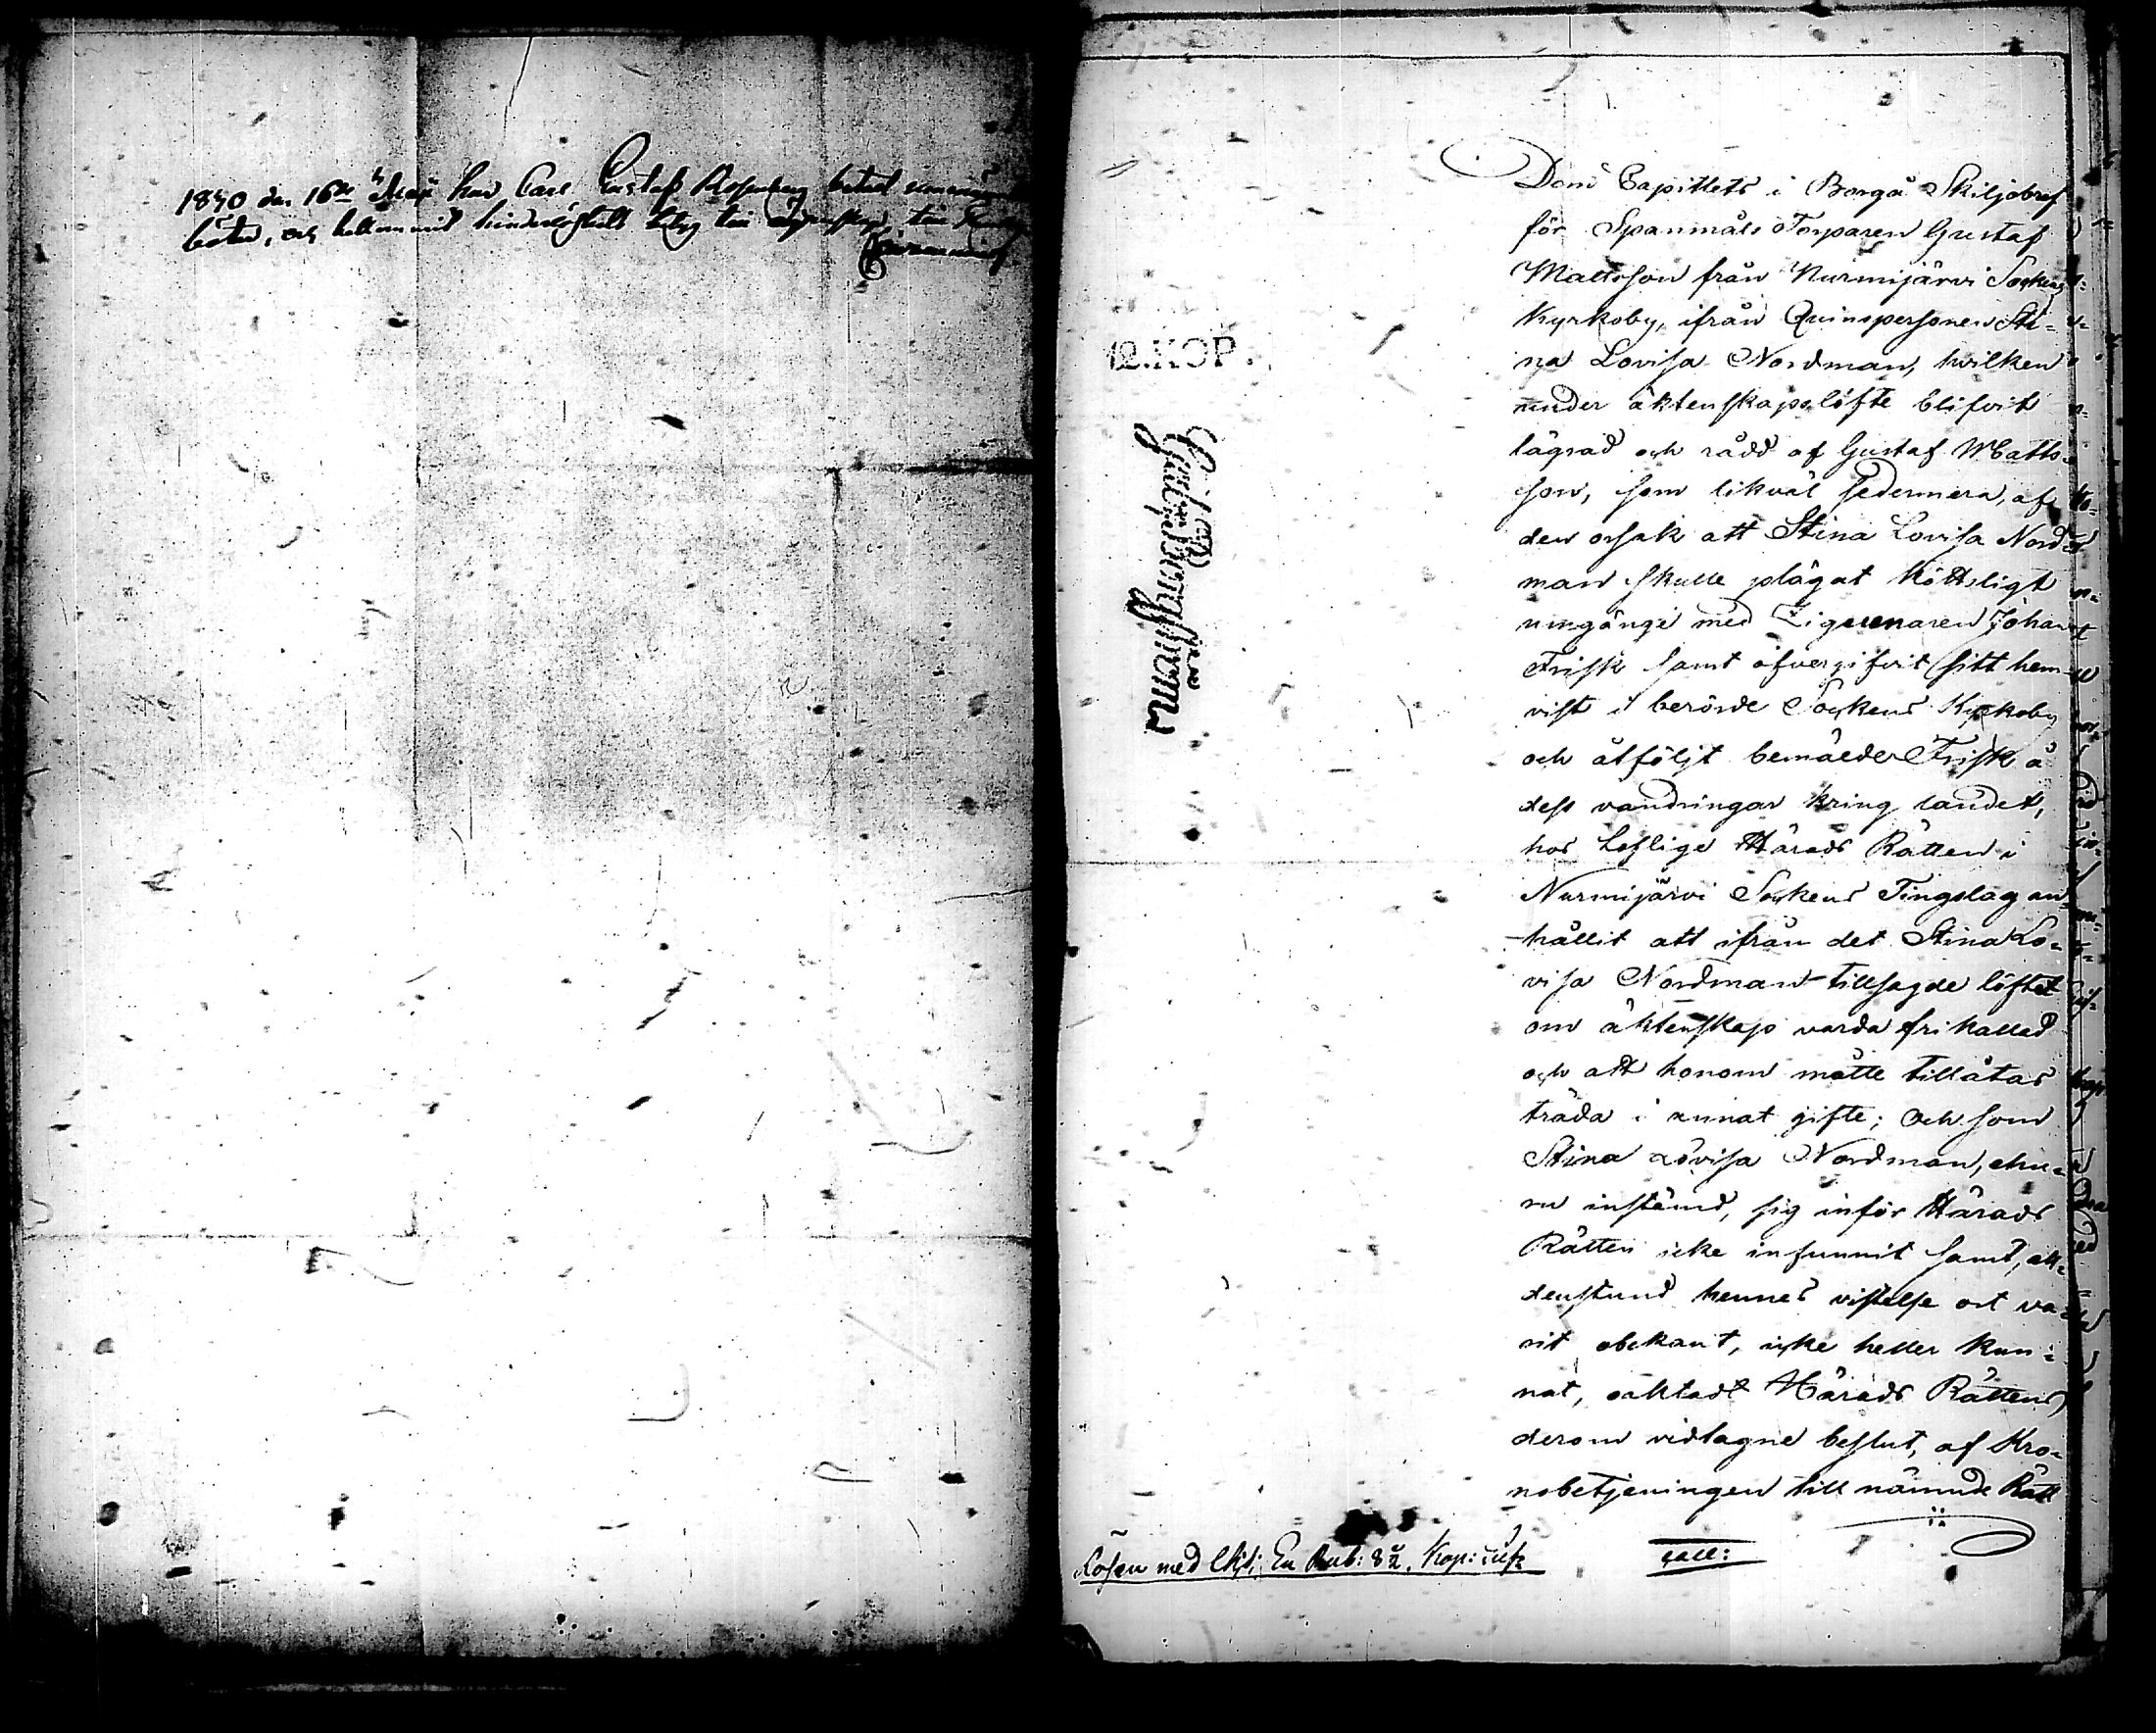 1850 den 16de Maji har Carl Gustaf Rosenberg beted
böter, och
Dom Capitlets i Borgå Skiljobref
för Spanmåls Torparen Gustaf
Mattsson från Nurmijärvi Socken
Kyrkoby, ifrån Quinspersonen Sti=
na Lovisa Nordman, hvilken
under äktenskapslöfte blifvit
lägrad och rådd af Gustaf Matts-
son, som likväl sedermera, af
den orsak att Stina Lovisa Nord-
man skulle plägat köttsligt
umgänge med Zigeunaren Johan
Frisk samt öfvergifvit sitt hem-
vist i berörde Sockens Kyrkoby
och åtföljt bemälde Frisk å
dess vandringar kring landet,
hos Loflige Härads Rätten i
Nurmijärvi Sockens Tingslag an-
hållit att ifrån det Stina Lo=
visa Nordman tillsagde löftet
om äktenskap varda frikallad
och att honom måtte tillåtas
träda i annat gifte; Och som
Stina Lovisa Nordman, ehu=
ru instämd, sig inför Härads
Rätten icke infunnit samt, all=
denstund hennes vistelse ort va-
rit obekant, icke heller kun=
nat, oaktadt Härads Rättens
derom vidtagne beslut, af Kro=
nobetjeningen till nämnde Rätt
12.KOP.
Lösen med En Rub: 8 1/2 Kop: Silf: